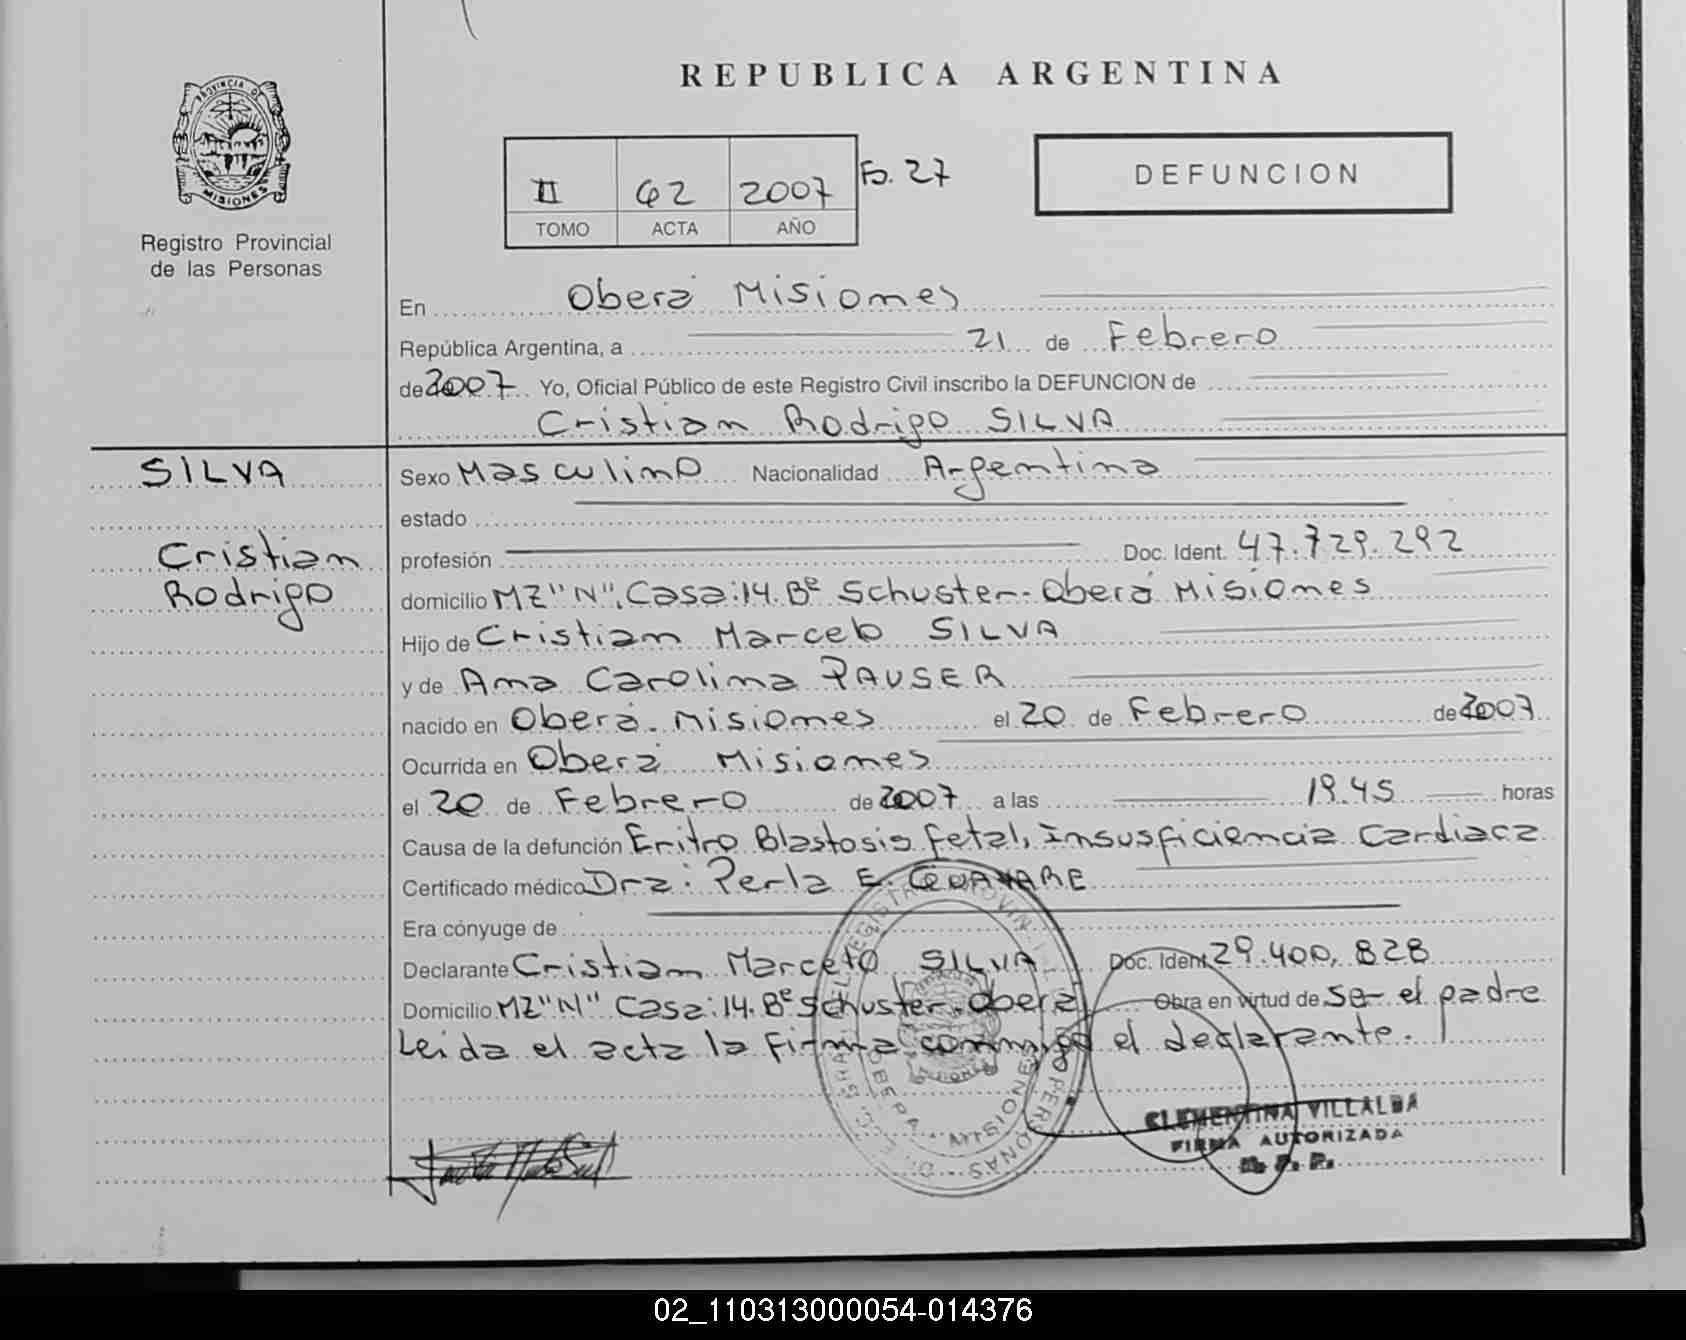 REPUBLICA ARGENTINA
PROVINCIA DE
MISIONES
Registro Provincial
de las Personas
II 62 2007 Fo. 27
TOMO ACTA AÑO
DEFUNCION
En Oberá Misiones
República Argentina, a 21 de Febrero
de 2007 Yo, Oficial Público de este Registro Civil inscribo la DEFUNCION de
Cristian Rodrigo SILVA
SILVA
Cristian
Rodrigo
Sexo Masculino Nacionalidad Argentina
estado
profesión Doc. Ident. 47.729.292
domicilio MZ"N". Casa:14. Bº Schuster-Oberá Misiones
Hijo de Cristian Marcelo SILVA
y de Ana Carolina PAUSER
nacido en Oberá. Misiones el 20 de Febrero de 2007
Ocurrida en Oberá Misiones
el 20 de Febrero de 2007 a las 19.45 horas
Causa de la defunción Eritro Blastosis fetal, Insusficiencia Cardiaca
Certificado médico Dra: Perla E.
Era cónyuge de
Declarante Cristian Marcelo SILVA Doc. Ident. 29.400.828
Domicilio MZ"N" Casa:14. Bº Schuster-Oberá Obra en virtud de Ser el padre
Leida el acta la firma conmigo el declarante.
OBERA - MISIONES
CLEMENTINA VILLALBA
FIRMA AUTORIZADA
R. P. P.
02_110313000054-014376